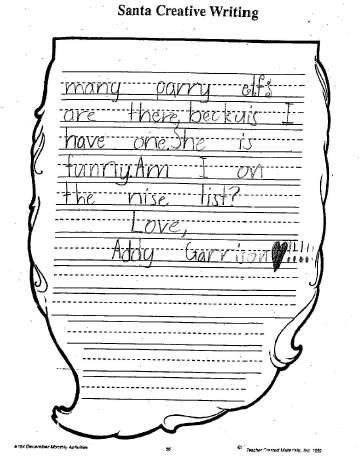 Santa Creative Writing
many parry elfs
are there, beckuis I
have one. She is
funny. Am I on
the nise list?
Love,
Addy Garrison
#187 December Monthly Activities
56
© Teacher Created Materials, Inc. 1989